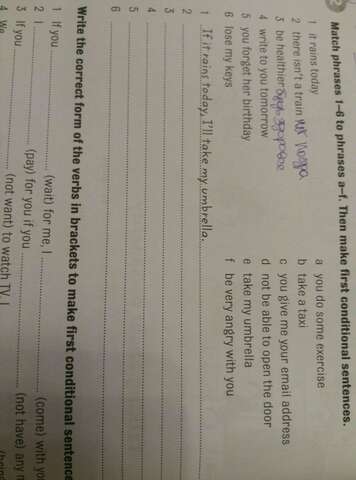 Match phrases 1–6 to phrases a–f. Then make first conditional sentences.
1 it rains today
2 there isn't a train
3 be healthier
4 write to you tomorrow
5 you forget her birthday
6 lose my keys
a you do some exercise
b take a taxi
c you give me your email address
d not be able to open the door
e take my umbrella
f be very angry with you
1 If it rains today, I'll take my umbrella.
2
3
4
5
6
Write the correct form of the verbs in brackets to make first conditional
1 If you (wait) for me, I (come) with
2 I (pay) for you if you (not have) any
3 If you (not want) to watch TV, I
4 We